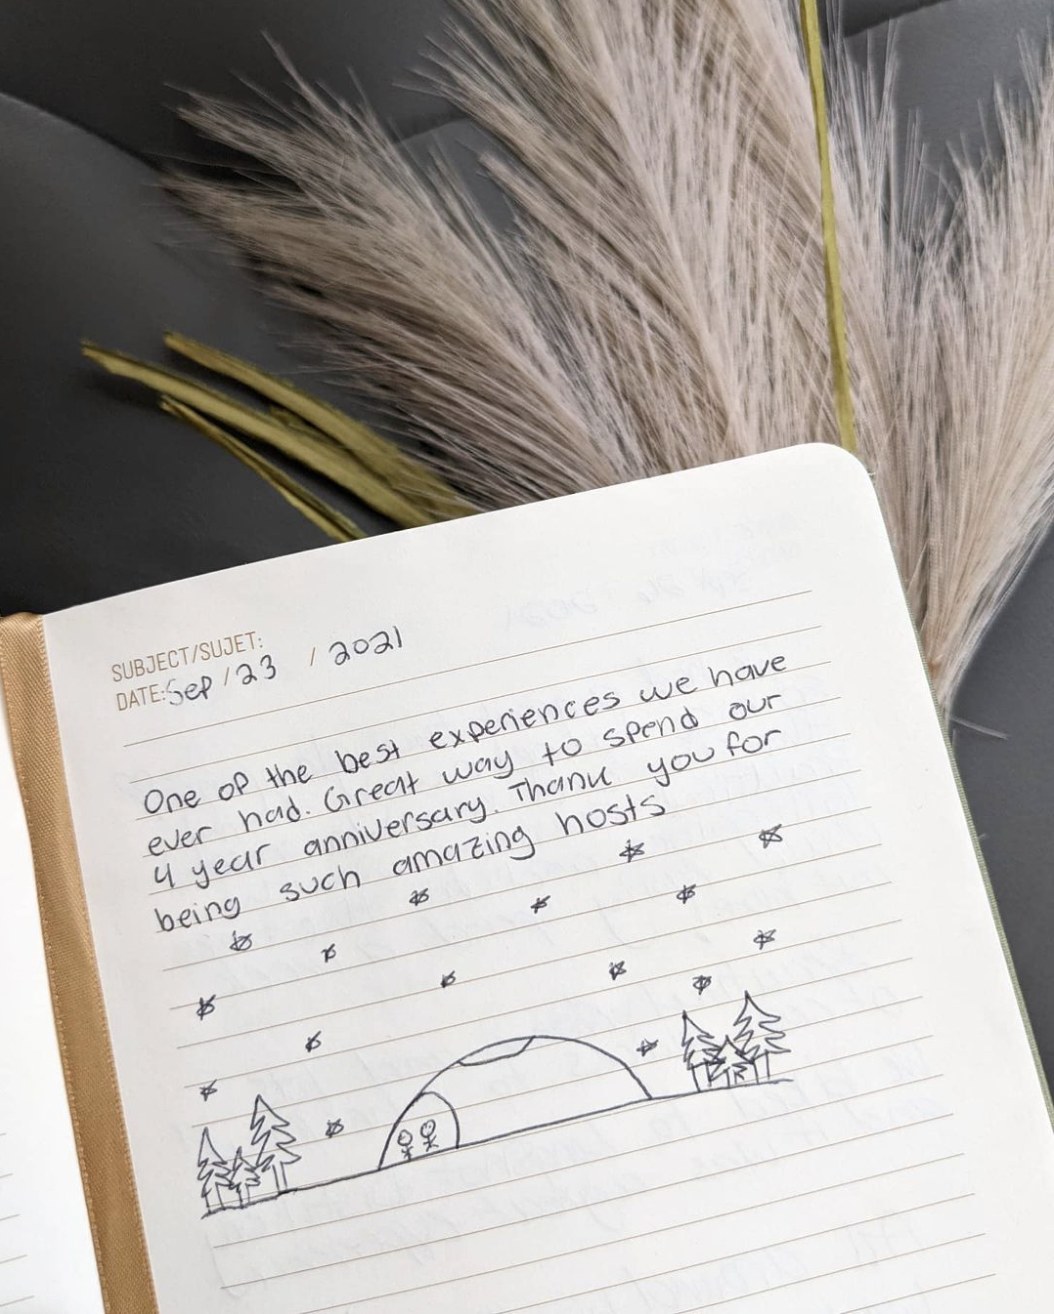 SUBJECT/SUJET:
DATE: Sep / 23 / 2021
One of the best experiences we have
ever had. Great way to spend our
4 year anniversary. Thank you for
being such amazing hosts